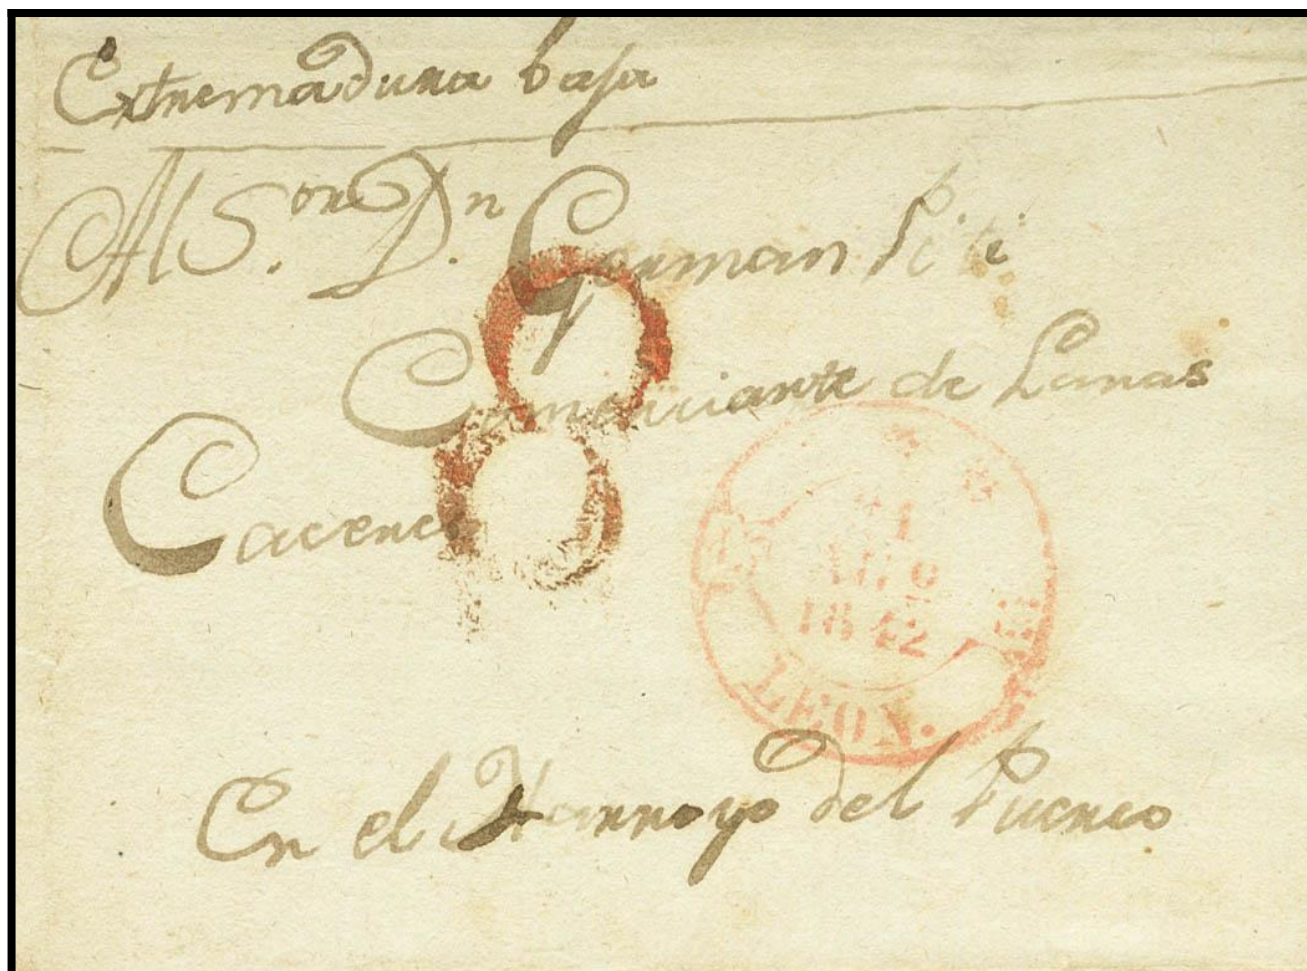 Extremadura baja
Al S.or D.n German Piti
Comerciante de Lanas
Caceres
8
1842
LEON.
En el Harroyo del Puerco